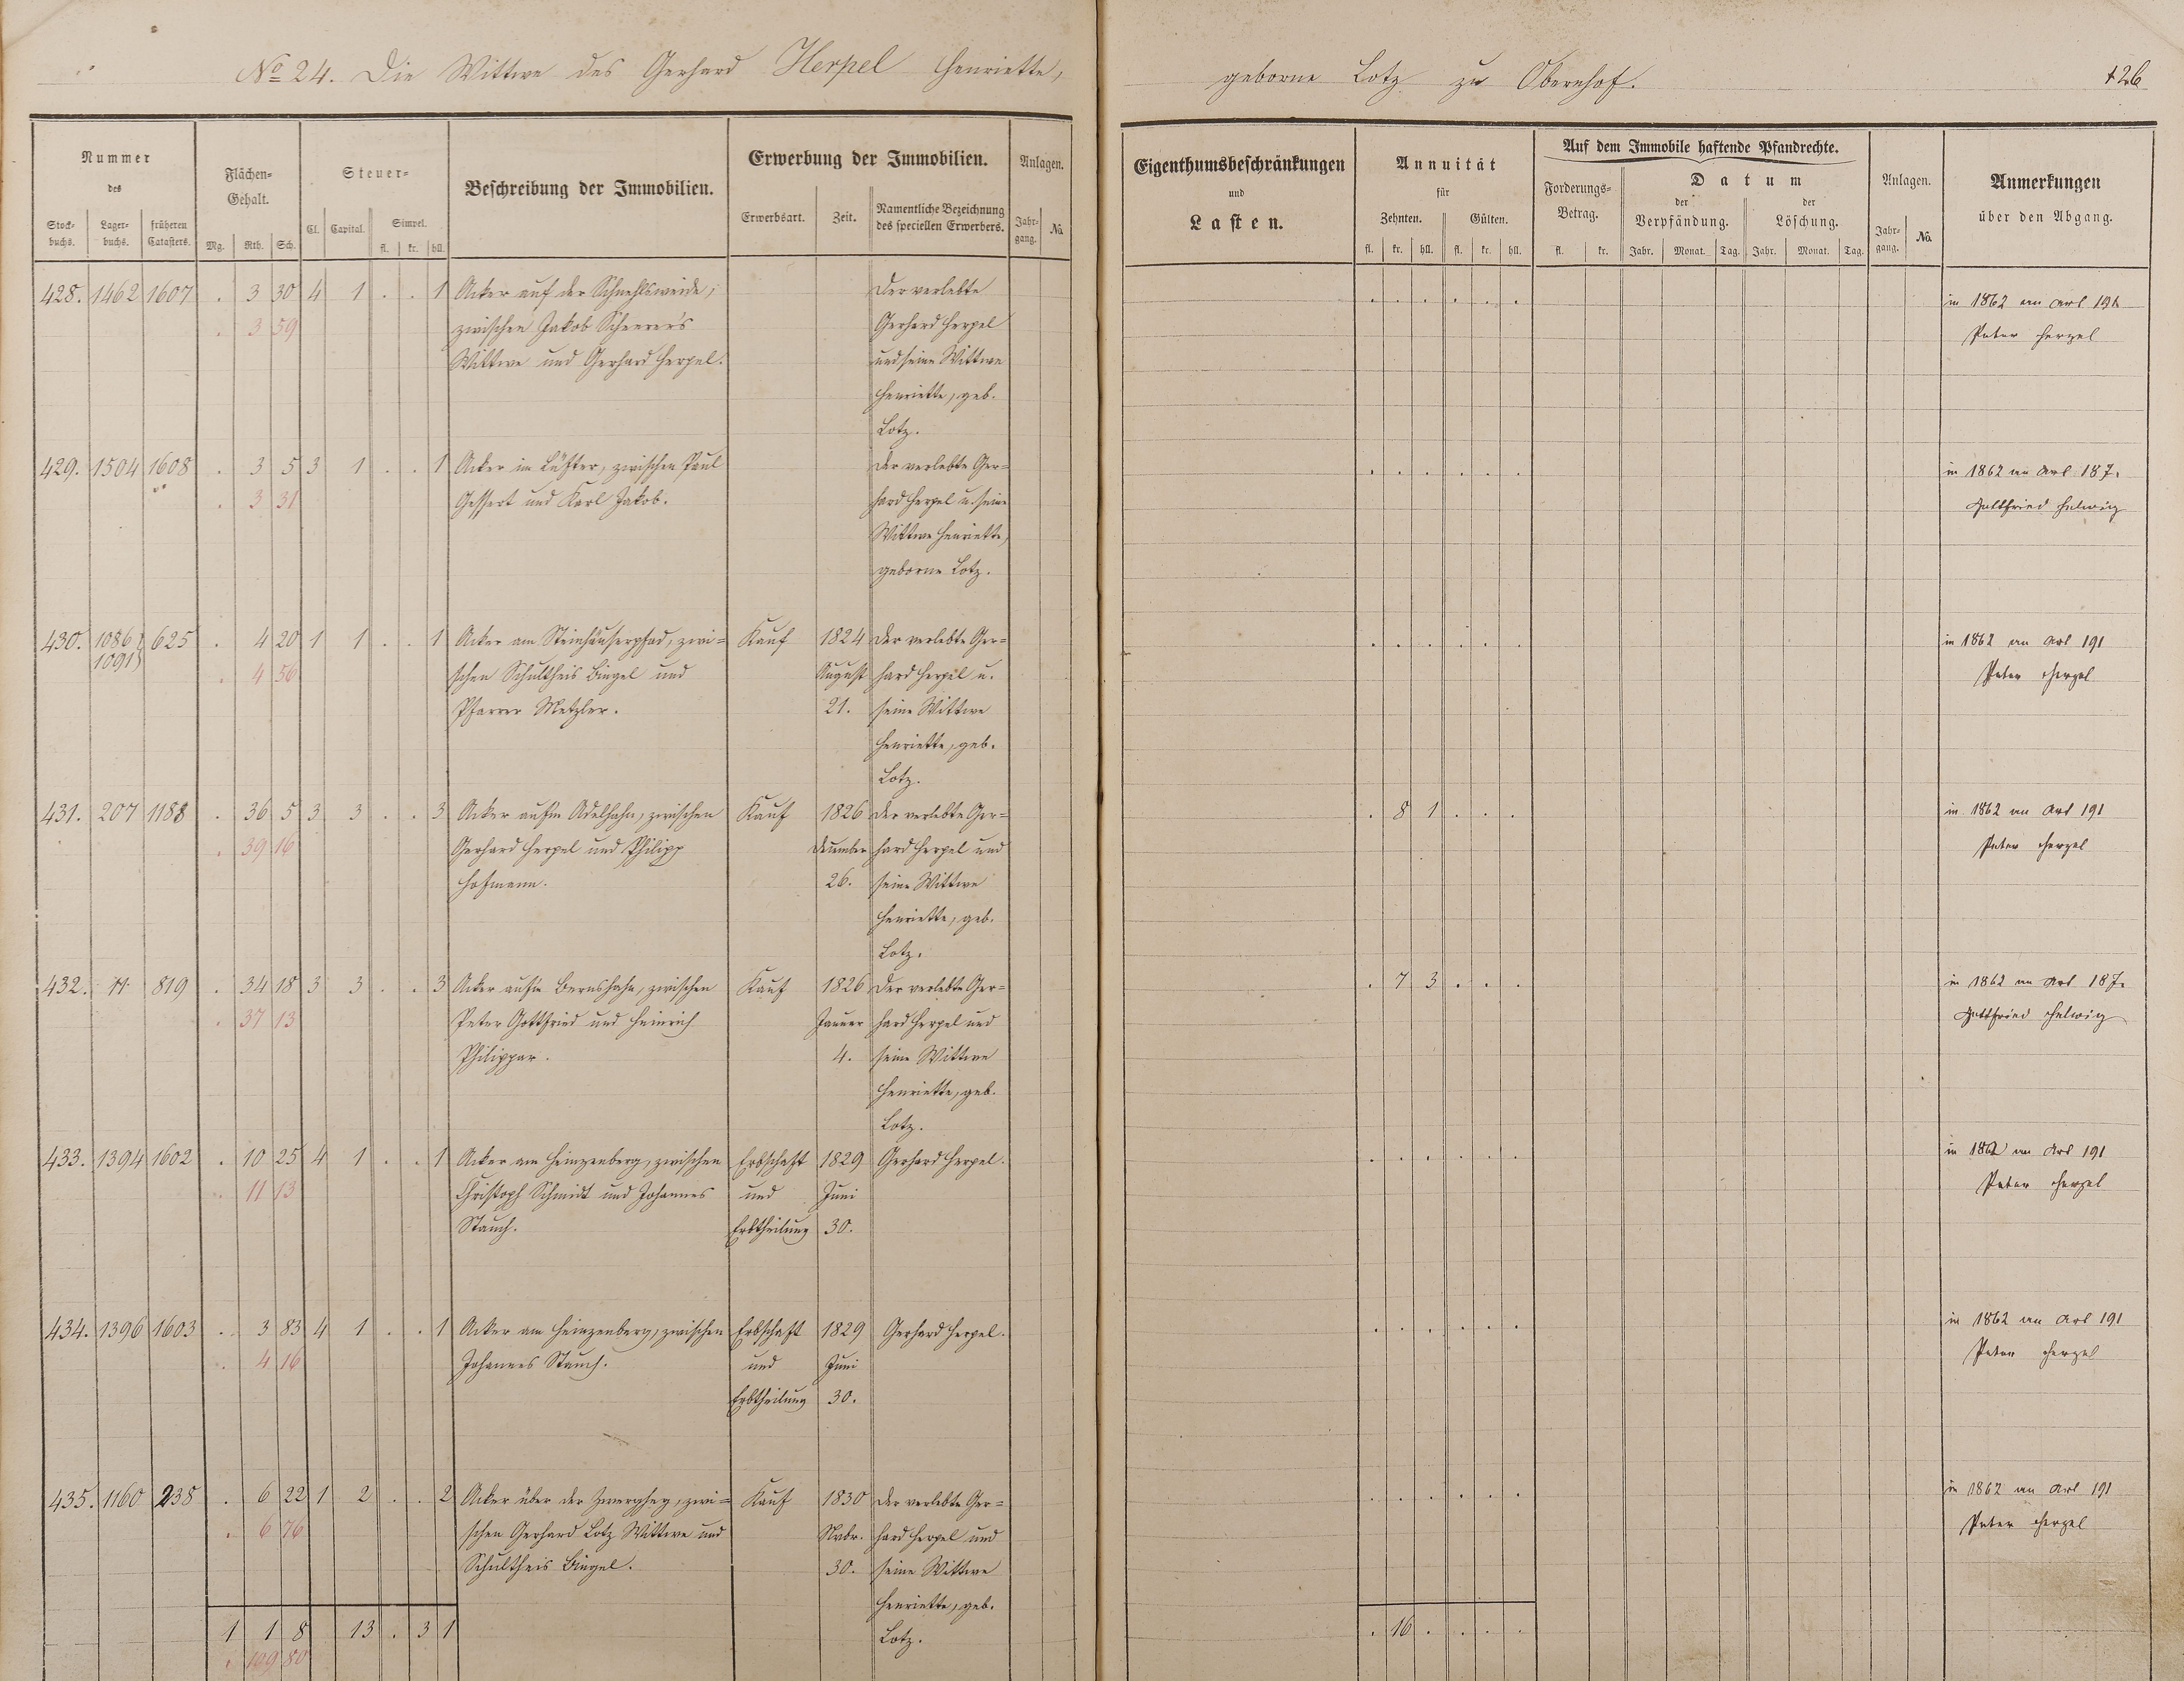 No 24. Die Wittwe des Gerhard Herpel Henriette,
geborne Lotz zu Obernhof.
126
Nummer
des
Stock-buchs.
Lager-buchs.
früheren Catasters.
Flächen-Gehalt.
Mg. Rth. Sch.
Steuer-
Cl. Capital.
Simpel.
fl. kr. hll.
Beschreibung der Immobilien.
Erwerbung der Immobilien.
Erwerbsart.
Zeit.
Namentliche Bezeichnung des speciellen Erwerbers.
Anlagen.
Jahr-gang. No.
Eigenthumsbeschränkungen
und
Lasten.
Annuität
für
Zehnten. Gülten.
fl. kr. hll. fl. kr. hll.
Auf dem Immobile haftende Pfandrechte.
Forderungs-Betrag.
fl. kr.
Datum
der Verpfändung.
der Löschung.
Jahr. Monat. Tag. Jahr. Monat. Tag.
Anlagen.
Jahr-gang. No.
Anmerkungen
über den Abgang.
428. 1462 1607 . 3 30 4 1 . . 1 Acker auf der Schnehlsweide, Der verlebte . . . . . . in 1862 an Art 191
. 3 59 zwischen Jakob Scheerer's Gerhard Herpel Peter Herpel
Wittwe und Gerhard Herpel. und seine Wittwe
Henriette, geb.
Lotz.
429. 1504 1608 . 3 5 3 1 . . 1 Acker im Lüster, zwischen Paul Der verlebte Ger= . . . . . . in 1862 an Art 187.
. 3 31 Gessert und Karl Jakob. hard Herpel u. seine Gottfried Helwig
Wittwe Henriette,
geborne Lotz.
430. 1086 625 . 4 20 1 1 . . 1 Acker am Steinhäuserpfad, zwi= Kauf 1824 Der verlebte Ger= . . . . . . in 1862 an Art 191
1091 . 4 56 schen Schultheis Bingel und August hard Herpel u. Peter Herpel
Pfarrer Metzler. 21. seine Wittwe
Henriette, geb.
Lotz.
431. 207 1188 . 36 5 3 3 . . 3 Acker aufm Adelhahn, zwischen Kauf 1826 Der verlebte Ger= . 8 1 . . . in 1862 an Art 191
. 39 16 Gerhard Herpel und Philipp December hard Herpel und Peter Herpel
Hofmann. 26. seine Wittwe
Henriette, geb.
Lotz.
432. 11 819 . 34 18 3 3 . . 3 Acker aufm Bernshahn, zwischen Kauf 1826 Der verlebte Ger= . 7 3 . . . in 1862 an Art 187.
. 37 13 Peter Gottfried und Heinrich Januar hard Herpel und Gottfried Helwig
Philippar. 4. seine Wittwe
Henriette, geb.
Lotz.
433. 1394 1602 . 10 25 4 1 . . 1 Acker am Heinzenberg, zwischen Erbschaft 1829 Gerhard Herpel. . . . . . . in 1862 an Art 191
. 11 13 Christoph Schmidt und Johannes und Juni Peter Herpel
Stauch. Erbtheilung 30.
434. 1396 1603 . 3 83 4 1 . . 1 Acker am Heinzenberg, zwischen Erbschaft 1829 Gerhard Herpel. . . . . . . in 1862 an Art 191
. 4 16 Johannes Stauch. und Juni Peter Herpel
Erbtheilung 30.
435. 1160 238 . 6 22 1 2 . . 2 Acker über der Zwerghey, zwi= Kauf 1830 Der verlebte Ger= . . . . . . in 1862 an Art 191
. 6 76 schen Gerhard Lotz Wittwe und Nvbr. hard Herpel und Peter Herpel
Schultheis Bingel. 30. seine Wittwe
Henriette, geb.
1 1 8 13 . 3 1 Lotz. . 16 . . . .
. 109 80